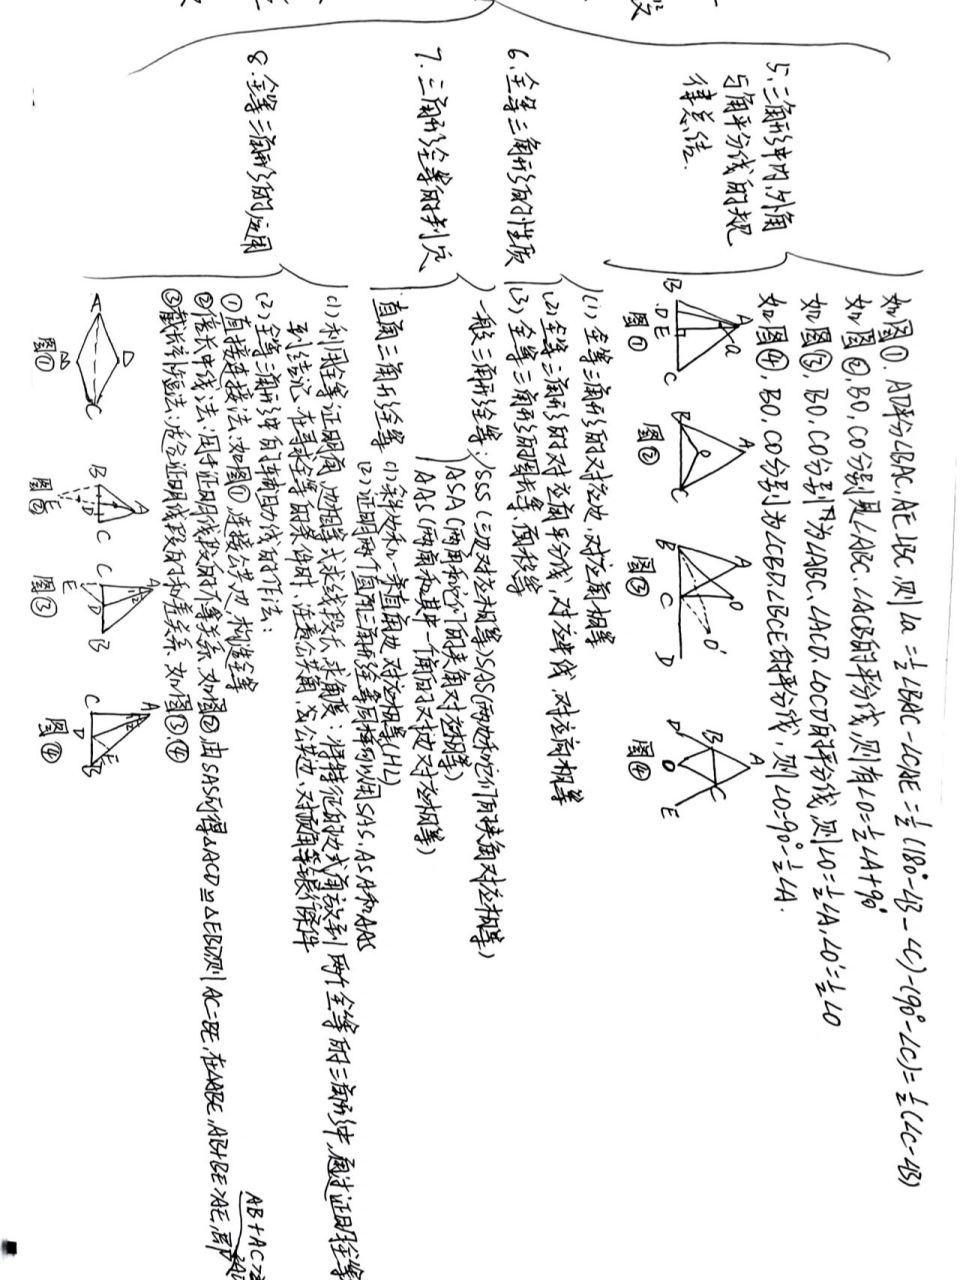 5.三角形中内,外角
与角平分线的规
律总结.
如图①,AD平分∠BAC,AE⊥BC,则∠α=½∠BAC-∠CAE=½(180°-∠B-∠C)-(90°-∠C)=½(∠C-∠B)
如图②,BO,CO分别是∠ABC,∠ACB的平分线,则有∠O=½∠A+90°
如图③,BO,CO分别为∠ABC,∠ACD,∠OCD的平分线,则∠O=½∠A,∠O'=½∠O
如图④,BO,CO分别为∠CBD,∠BCE的平分线,则∠O=90°-½∠A.
A α B D E C 图①
A B O C 图②
A O O' B C D 图③
A B C D O E 图④
6.全等三角形的性质
(1)全等三角形的对应边,对应角相等
(2)全等三角形的对应角平分线,对应中线,对应高相等
(3)全等三角形的周长等,面积等
7.三角形全等的判定
一般三角形全等:SSS(三边对应相等)SAS(两边和它们的夹角对应相等)
ASA(两角和它们的夹角对应相等)
AAS(两角和其中一角的对边对应相等)
直角三角形全等
(1)斜边和一条直角边对应相等(HL)
(2)证明两个直角三角形全等同样可以用SAS,ASA和AAS
8.全等三角形的应用
(1)利用全等证明角,边相等或求线段长,求角度:将特征的边或角放到两个全等的三角形中,通过证明全等
得到结论.在寻求全等的条件时,注意公共角,公共边,对顶角等银行条件
(2)全等三角形中的辅助线的作法:
①直接连接法:如图①,连接公共边,构造全等
②倍长中线法:用于证明线段的不等关系,如图②,由SAS可得△ACD≌△EBD,则AC=BE,在△ABE,AB+BE>AE,即
AB+AC>2AD
③截长补短法:适合证明线段的和差关系,如图③,④
A D C 图①
A B D C E 图②
A 1 2 C D B E 图③
A 1 2 C D B E 图④